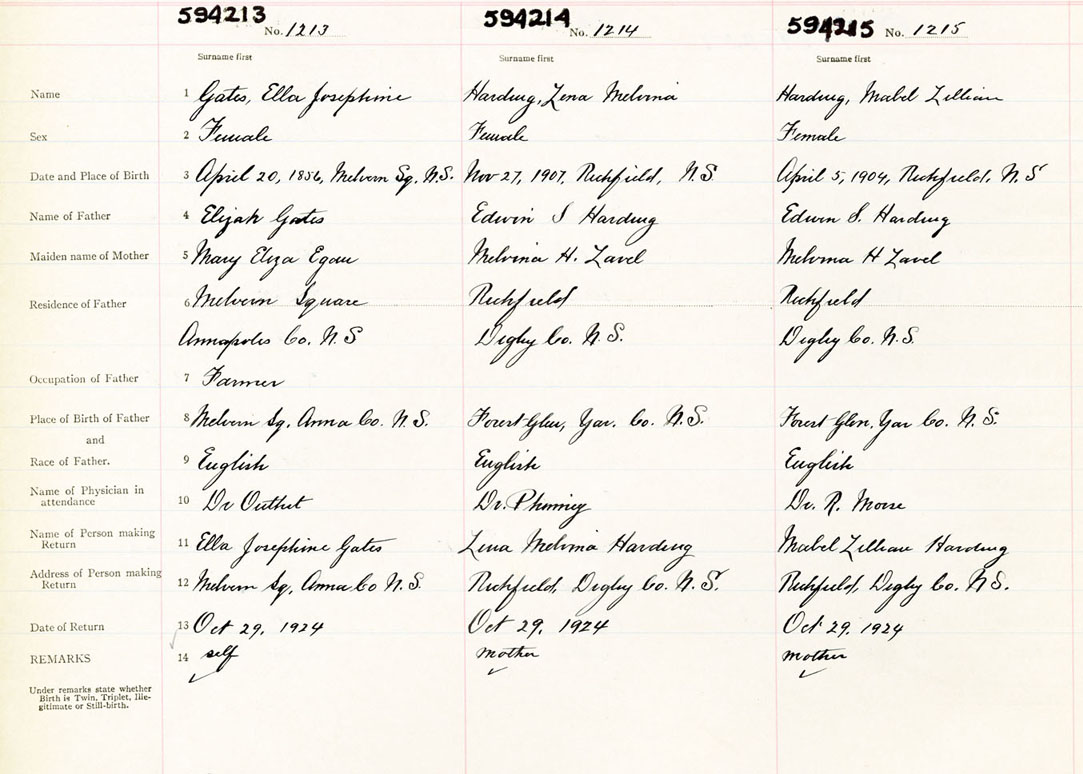 594213 No. 1213 594214 No. 1214 594215 No. 1215
Surname first Surname first Surname first
Name 1 Gates, Ella Josephine Harding, Lena Melvina Harding, Mabel Lillian
Sex 2 Female Female Female
Date and Place of Birth 3 April 20, 1856, Melvern Sq. N.S. Nov 27, 1907, Richfield, N.S April 5, 1904, Richfield, N.S
Name of Father 4 Elijah Gates Edwin S Harding Edwin S. Harding
Maiden name of Mother 5 Mary Eliza Egan Melvina H. Lavel Melvina H Lavel
Residence of Father 6 Melvern Square Richfield Richfield
Annapolis Co. N.S Digby Co. N.S. Digby Co. N.S.
Occupation of Father 7 Farmer
Place of Birth of Father 8 Melvern Sq. Anna Co. N.S. Forest Glen, Yar. Co. N.S. Forest Glen, Yar Co. N.S.
and
Race of Father. 9 English English English
Name of Physician in
attendance 10 Dr Outhit Dr. Phinney Dr. R. Morse
Name of Person making
Return 11 Ella Josephine Gates Lena Melvina Harding Mabel Lillian Harding
Address of Person making
Return 12 Melvern Sq, Anna Co N.S. Richfield, Digby Co. N.S. Richfield, Digby Co. N.S.
Date of Return 13 Oct 29, 1924 Oct 29, 1924 Oct 29, 1924
REMARKS 14 self mother mother
Under remarks state whether
Birth is Twin, Triplet, Ille-
gitimate or Still-birth.